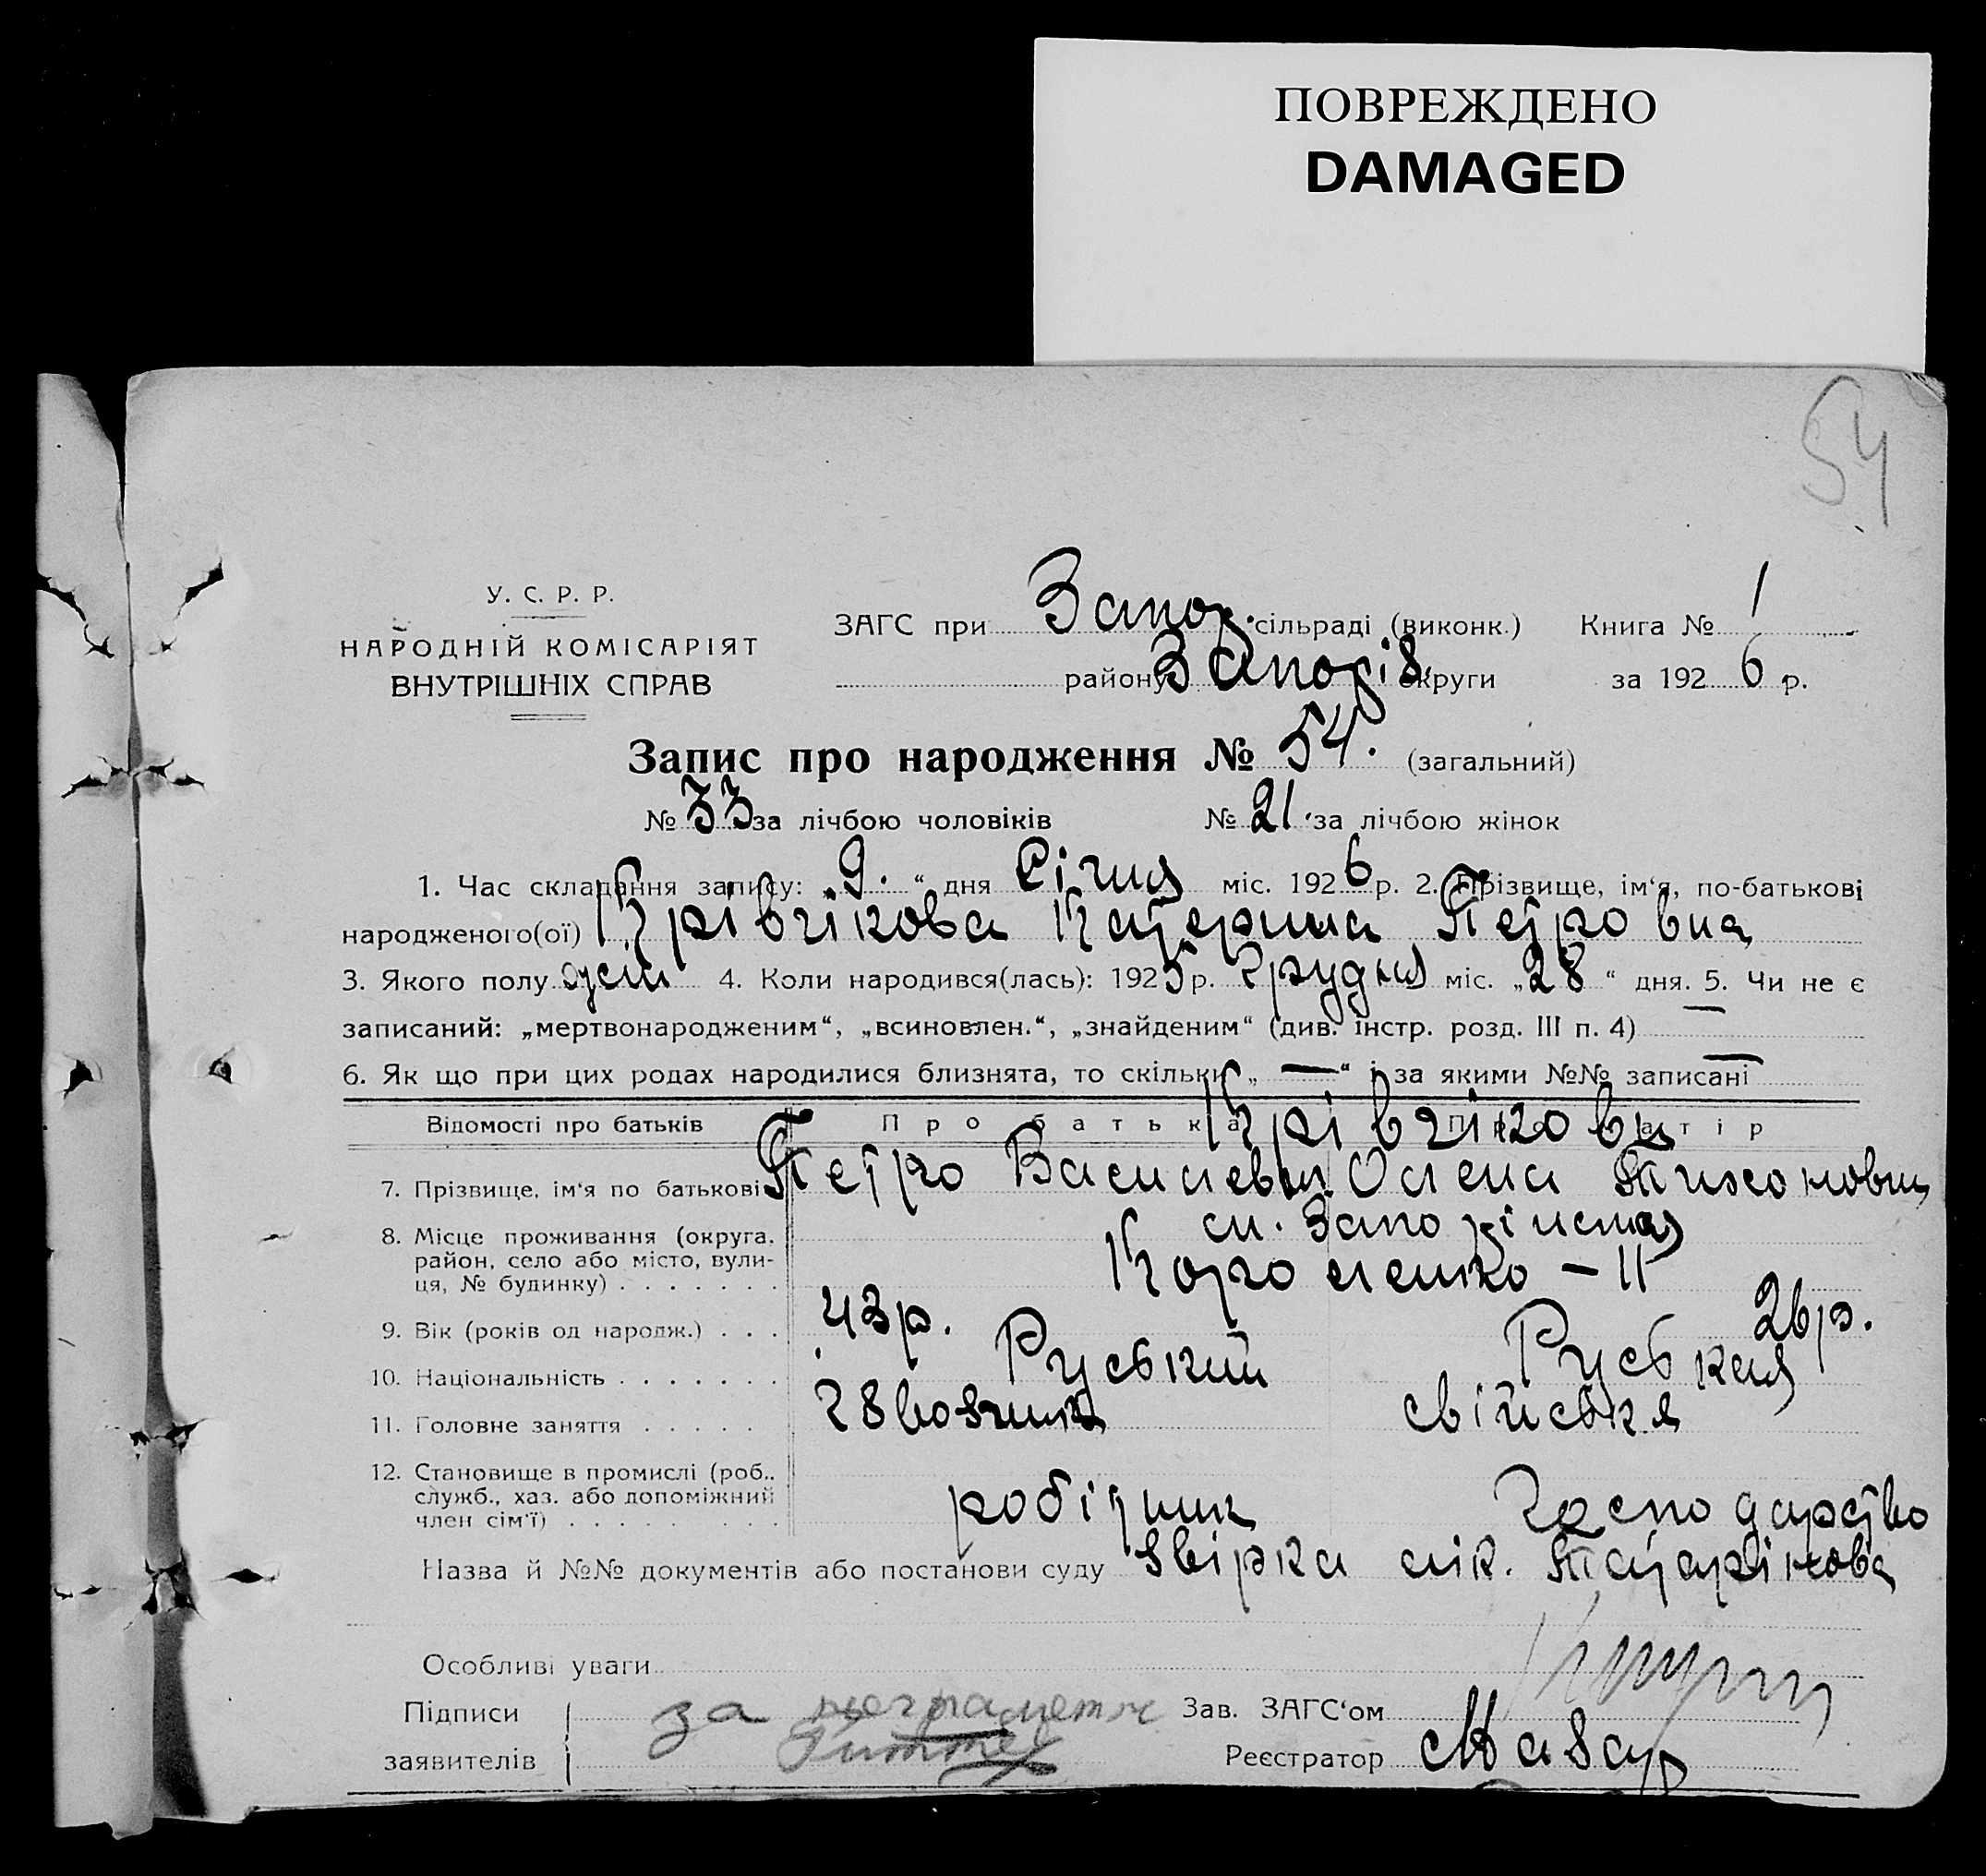 ПОВРЕЖДЕНО
DAMAGED
54
У. С. Р. Р.
НАРОДНІЙ КОМІСАРІЯТ
ВНУТРІШНІХ СПРАВ
ЗАГС при Запор. сільраді (виконк.) Книга № 1
району Запоріз. округи за 1926 р.
Запис про народження № 54. (загальний)
№ 33 за лічбою чоловіків № 21. за лічбою жінок
1. Час складання запису: „9.“ дня Січня міс. 1926 р. 2. Прізвище, ім‘я, по-батькові
народженого(ої) Крівчікова Катерина Петровна
3. Якого полу 4. Коли народився(лась): 1925 р. Грудня міс. „28“ дня. 5. Чи не є
записаний: „мертвонародженим“, „всиновлен.“, „знайденим“ (див. інстр. розд. III п. 4) —
6. Як що при цих родах народилися близнята, то скільки „—“ і за якими №№ записані —
Відомості про батьків Про батька Крівчікови Про матір
7. Прізвище, ім‘я по батькові Петро Василевич Олена Тихоновна
8. Місце проживання (округа, ст. Запоріжжя
район, село або місто, вули-
ця, № будинку) . . . . . . . Короленко – 11
9. Вік (років од народж.) . . . 43 р. 26 р.
10. Національність . . . . . . . Руський Руськая
11. Головне заняття . . . . . Звозчик свійське
12. Становище в промислі (роб.,
служб., хаз. або допоміжний робітник господарство
член сім‘ї) . . . . . . . .
Назва й №№ документів або постанови суду Звірка лік. Татарінова
Особливі уваги
Підписи за неграмотн Зав. ЗАГС‘ом
заявителів Реєстратор Мазур